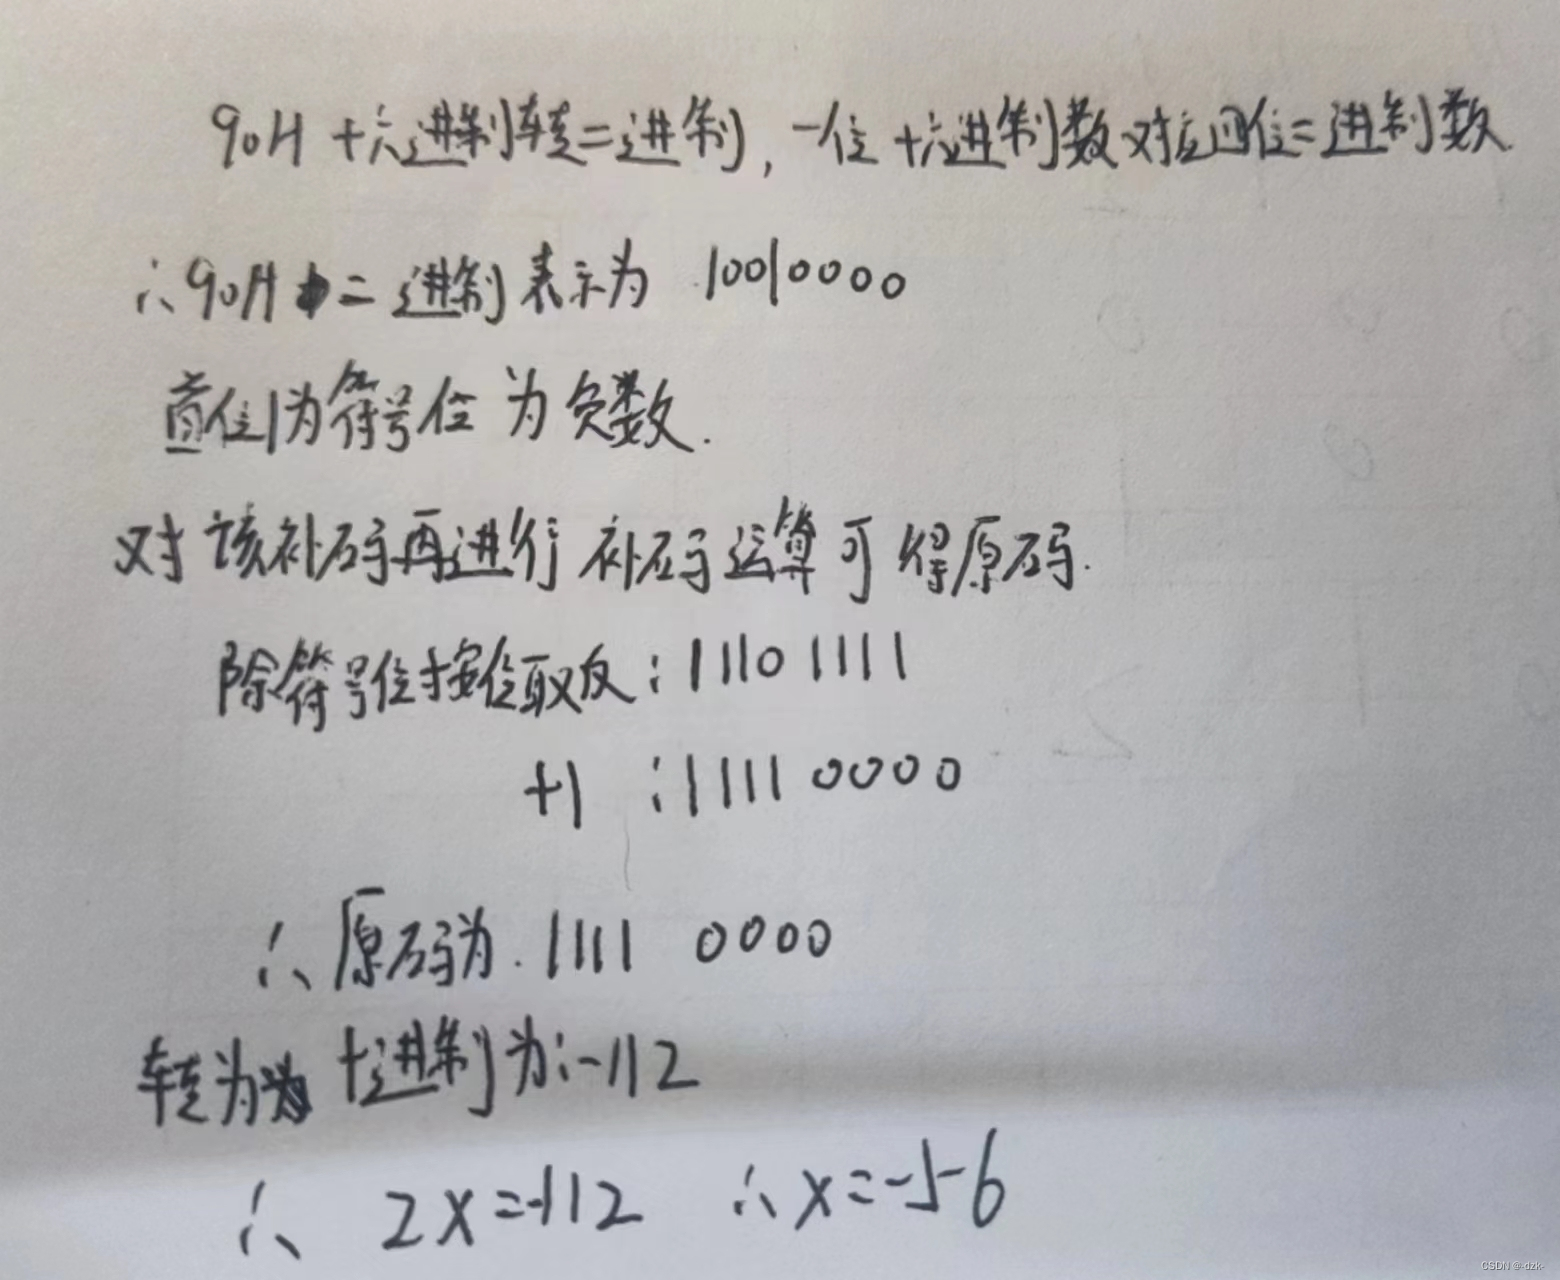 90H 十六进制转二进制，一位十六进制数对应四位二进制数
∴90H 二进制表示为 10010000
首位1为符号位 为负数.
对该补码再进行补码运算可得原码.
除符号位按位取反：11101111
+1 ：11110000
∴原码为.1111 0000
转为 十进制为：-112
∴ 2x=-112 ∴x=-56
CSDN @-dzk-